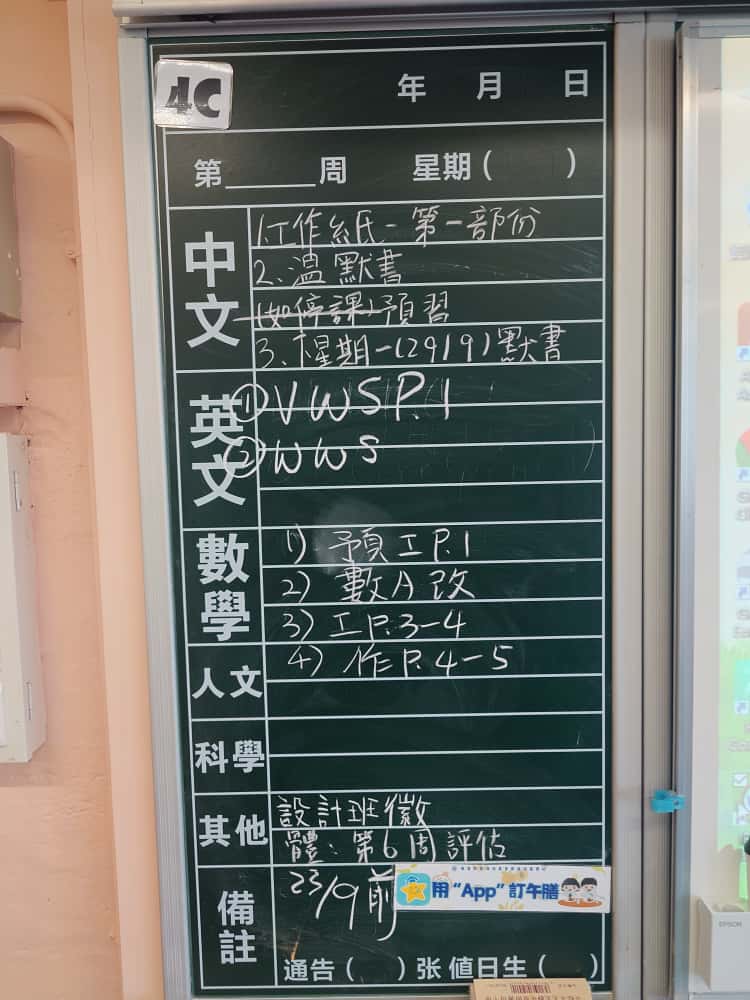 4C
年 月 日
第______周 星期( )
中文
1.工作紙-第一部份
2.溫默書
(如停課)預習
3.下星期一(29/9)默書
英文
①VWSP.1
②WWS
數學
1) 預工P.1
2) 數A改
3) 工P.3-4
4) 作P.4-5
人文
科學
其他
設計班徽
體:第6周評估
備註
23/9前
用“App”訂午膳
通告( )张 値日生( )
EPSON